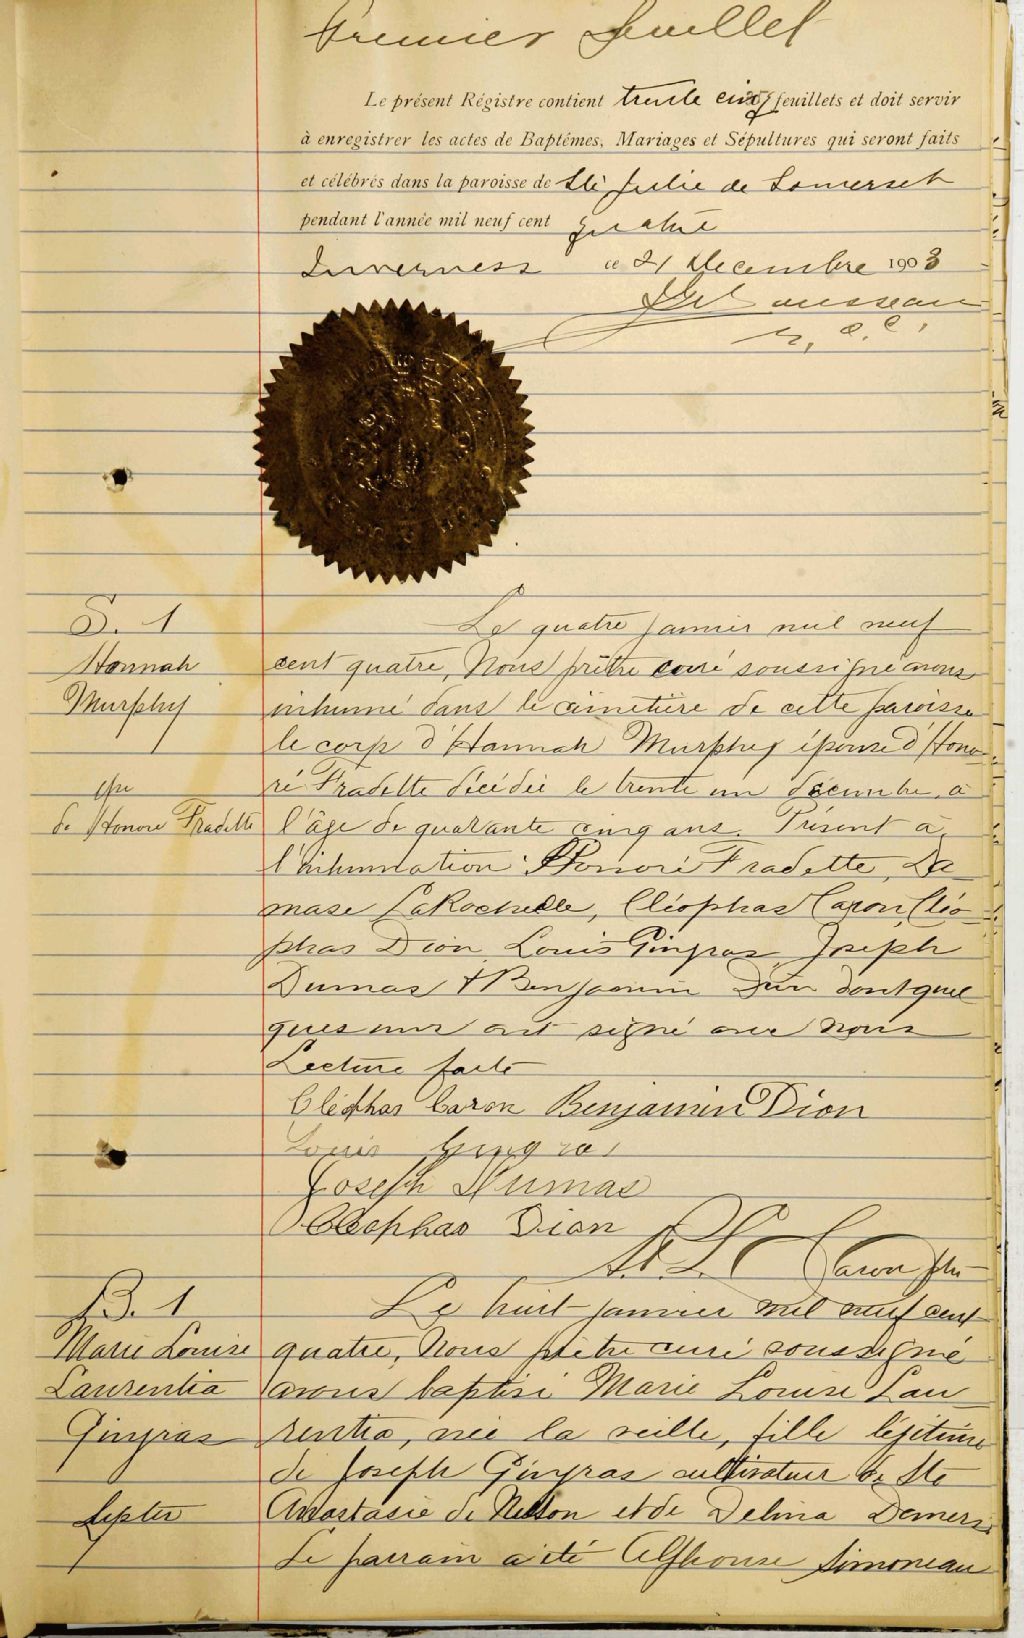 Premier feuillet
Le présent Régistre contient trente cinq feuillets et doit servir
à enregistrer les actes de Baptêmes, Mariages et Sépultures qui seront faits
et célébrés dans la paroisse de Ste Julie de Somerset
pendant l'année mil neuf cent quatre
Inverness ce 21 Décembre 1903
Rousseau
S. 1
Hannah
Murphy
de Honoré Fradette
Le quatre janvier mil neuf
cent quatre, Nous prêtre curé soussigné avons
inhumé dans le cimetière de cette paroisse
le corp d'Hannah Murphy épouse d'Hono-
ré Fradette décédée le trente un décembre, à
l'âge de quarante cinq ans. Présent à
l'inhumation: Honoré Fradette, Da-
mase LaRochelle, Cléophas Caron, Cléo-
phas Dion, Louis Gingras, Joseph
Dumas & Benjamin Dion dont quel
ques uns ont signé avec nous
Lecture faite
Cléophas Caron Benjamin Dion
Louis Gingras
Joseph Dumas
Cleophas Dion
Caron ptre
B. 1
Marie Louise
Laurentia
Gingras
Le huit janvier mil neuf cent
quatre, Nous prêtre curé soussigné
avons baptisé Marie Louise Lau-
rentia, née la veille, fille légitime
de Joseph Gingras cultivateur de Ste
Anastasie de Nelson et de Delina Demers.
Le parrain a été Alphonse Simoneau